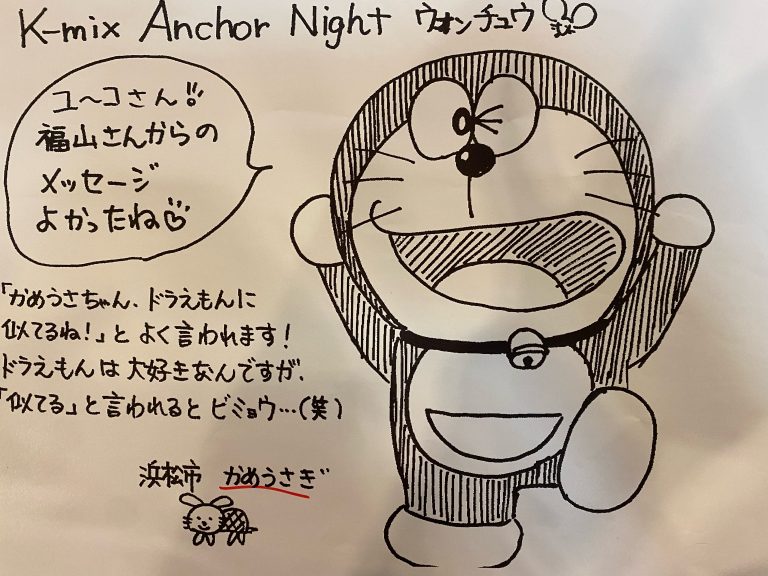 K-mix Anchor Night ウォンチュウ
ユ〜コさん!
福山さんからの
メッセージ
よかったね♡
「かめうさちゃん、ドラえもんに
似てるね!」と よく言われます!
ドラえもんは大好きなんですが、
「似てる」と言われると ビミョウ…(笑)
浜松市 かめうさぎ